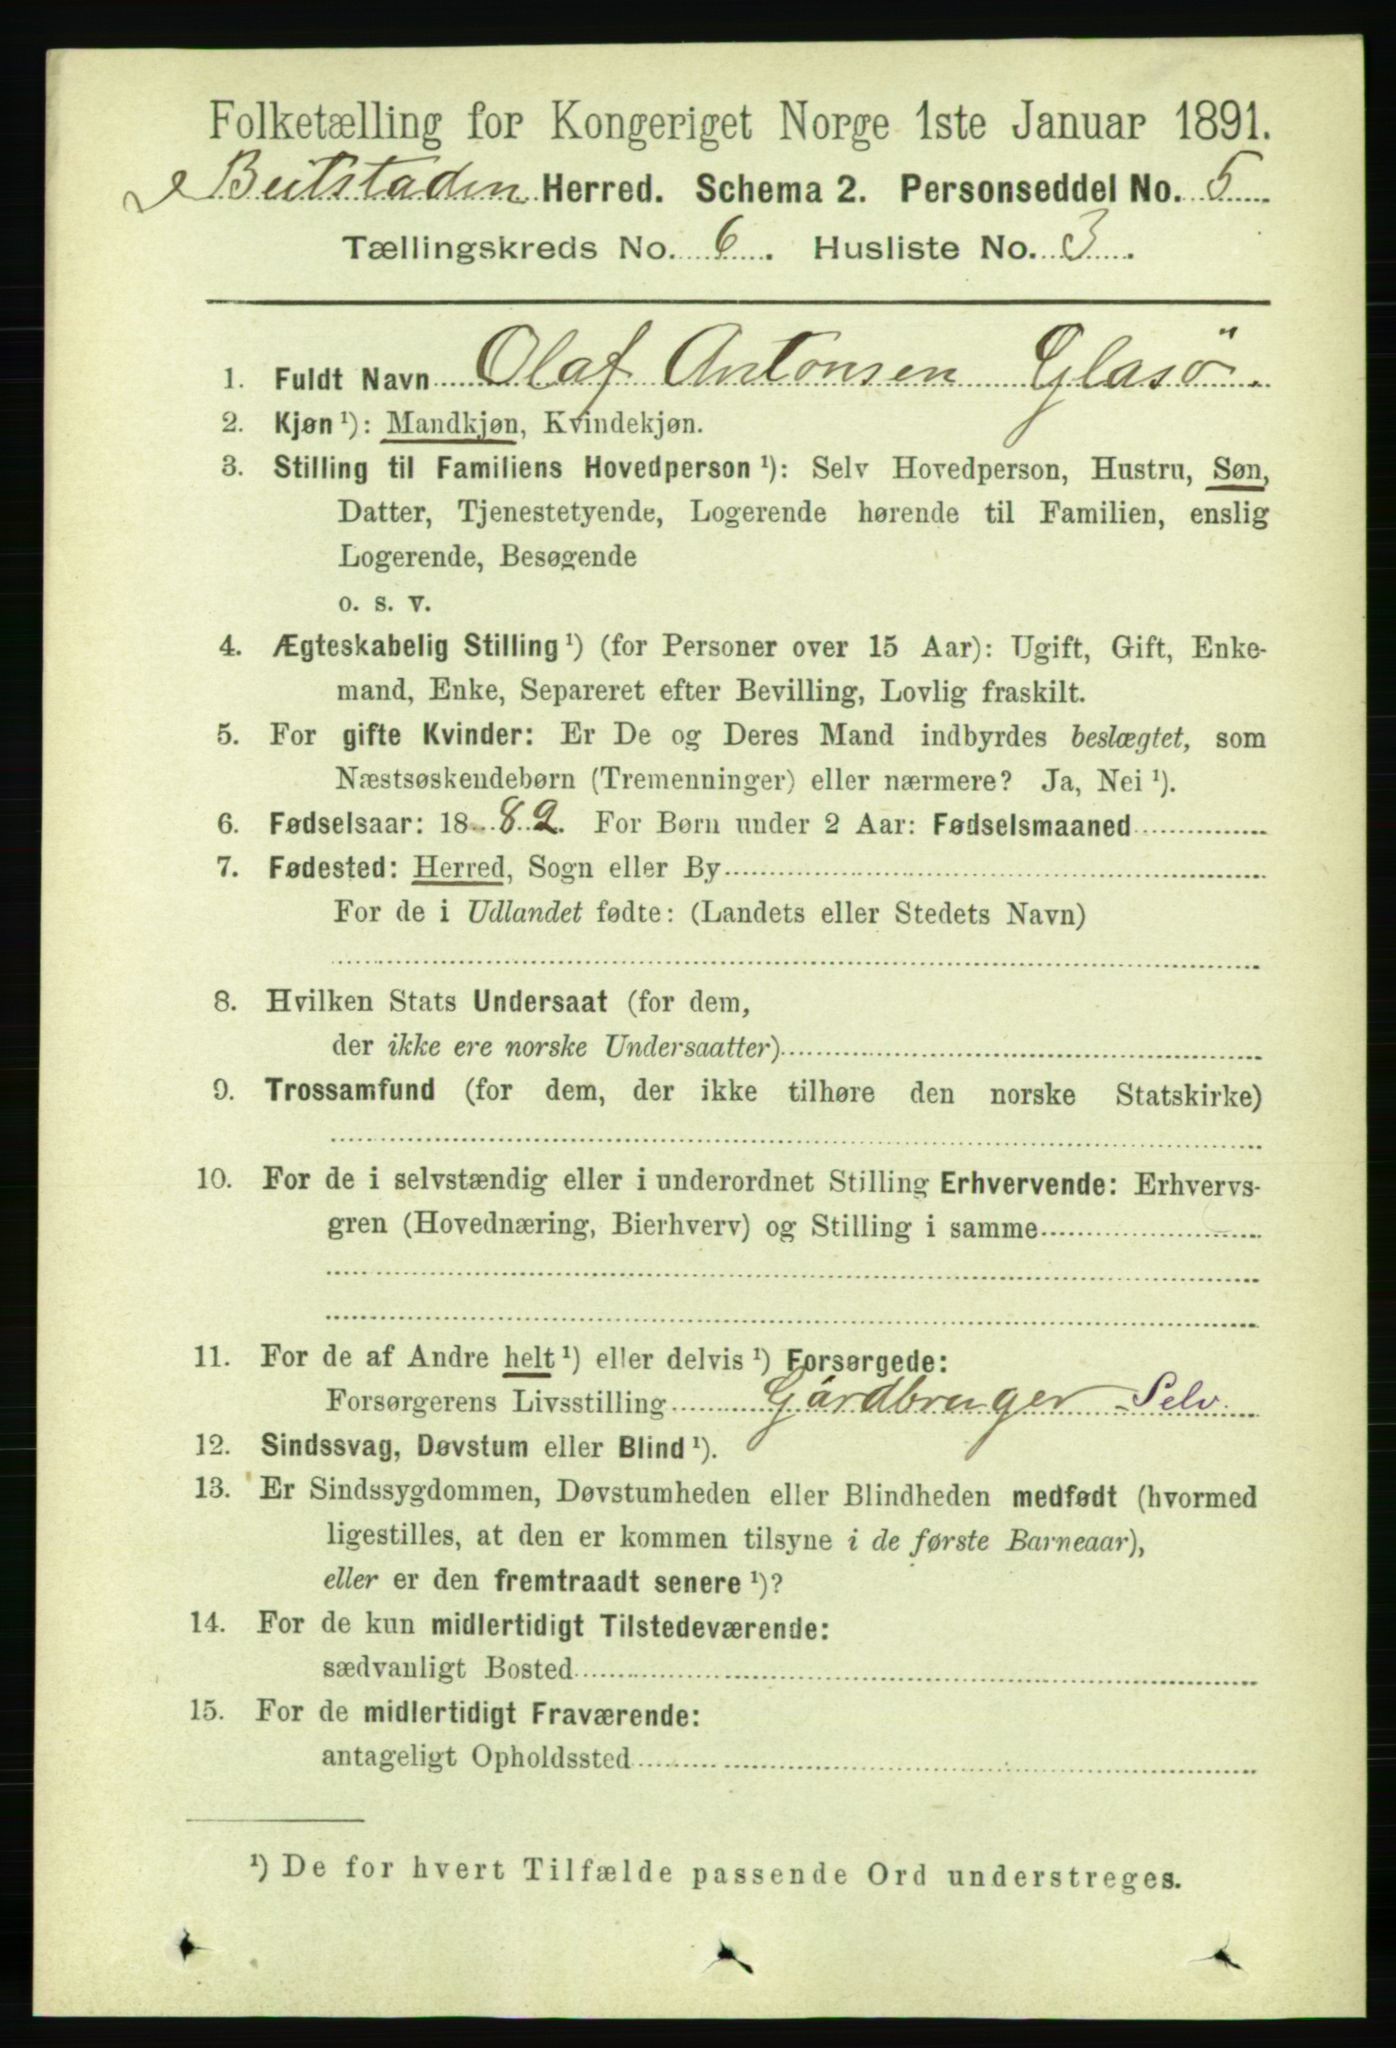 Folketælling for Kongeriget Norge 1ste Januar 1891.
Beitstaden Herred. Schema 2. Personseddel No. 5
Tællingskreds No. 6. Husliste No. 3.
1. Fuldt Navn Olaf Antonsen Glasö
2. Kjøn¹): Mandkjøn, Kvindekjøn.
3. Stilling til Familiens Hovedperson¹): Selv Hovedperson, Hustru, Søn,
Datter, Tjenestetyende, Logerende hørende til Familien, enslig
Logerende, Besøgende
o. s. v.
4. Ægteskabelig Stilling¹) (for Personer over 15 Aar): Ugift, Gift, Enke-
mand, Enke, Separeret efter Bevilling, Lovlig fraskilt.
5. For gifte Kvinder: Er De og Deres Mand indbyrdes beslægtet, som
Næstsøskendebørn (Tremenninger) eller nærmere? Ja, Nei¹).
6. Fødselsaar: 1882. For Børn under 2 Aar: Fødselsmaaned
7. Fødested: Herred, Sogn eller By
For de i Udlandet fødte: (Landets eller Stedets Navn)
8. Hvilken Stats Undersaat (for dem,
der ikke ere norske Undersaatter)
9. Trossamfund (for dem, der ikke tilhøre den norske Statskirke)
10. For de i selvstændig eller i underordnet Stilling Erhvervende: Erhvervs-
gren (Hovednæring, Bierhverv) og Stilling i samme
11. For de af Andre helt¹) eller delvis¹) Forsørgede:
Forsørgerens Livsstilling Gårdbruger Selv.
12. Sindssvag, Døvstum eller Blind¹).
13. Er Sindssygdommen, Døvstumheden eller Blindheden medfødt (hvormed
ligestilles, at den er kommen tilsyne i de første Barneaar),
eller er den fremtraadt senere¹)?
14. For de kun midlertidigt Tilstedeværende:
sædvanligt Bosted
15. For de midlertidigt Fraværende:
antageligt Opholdssted
¹) De for hvert Tilfælde passende Ord understreges.